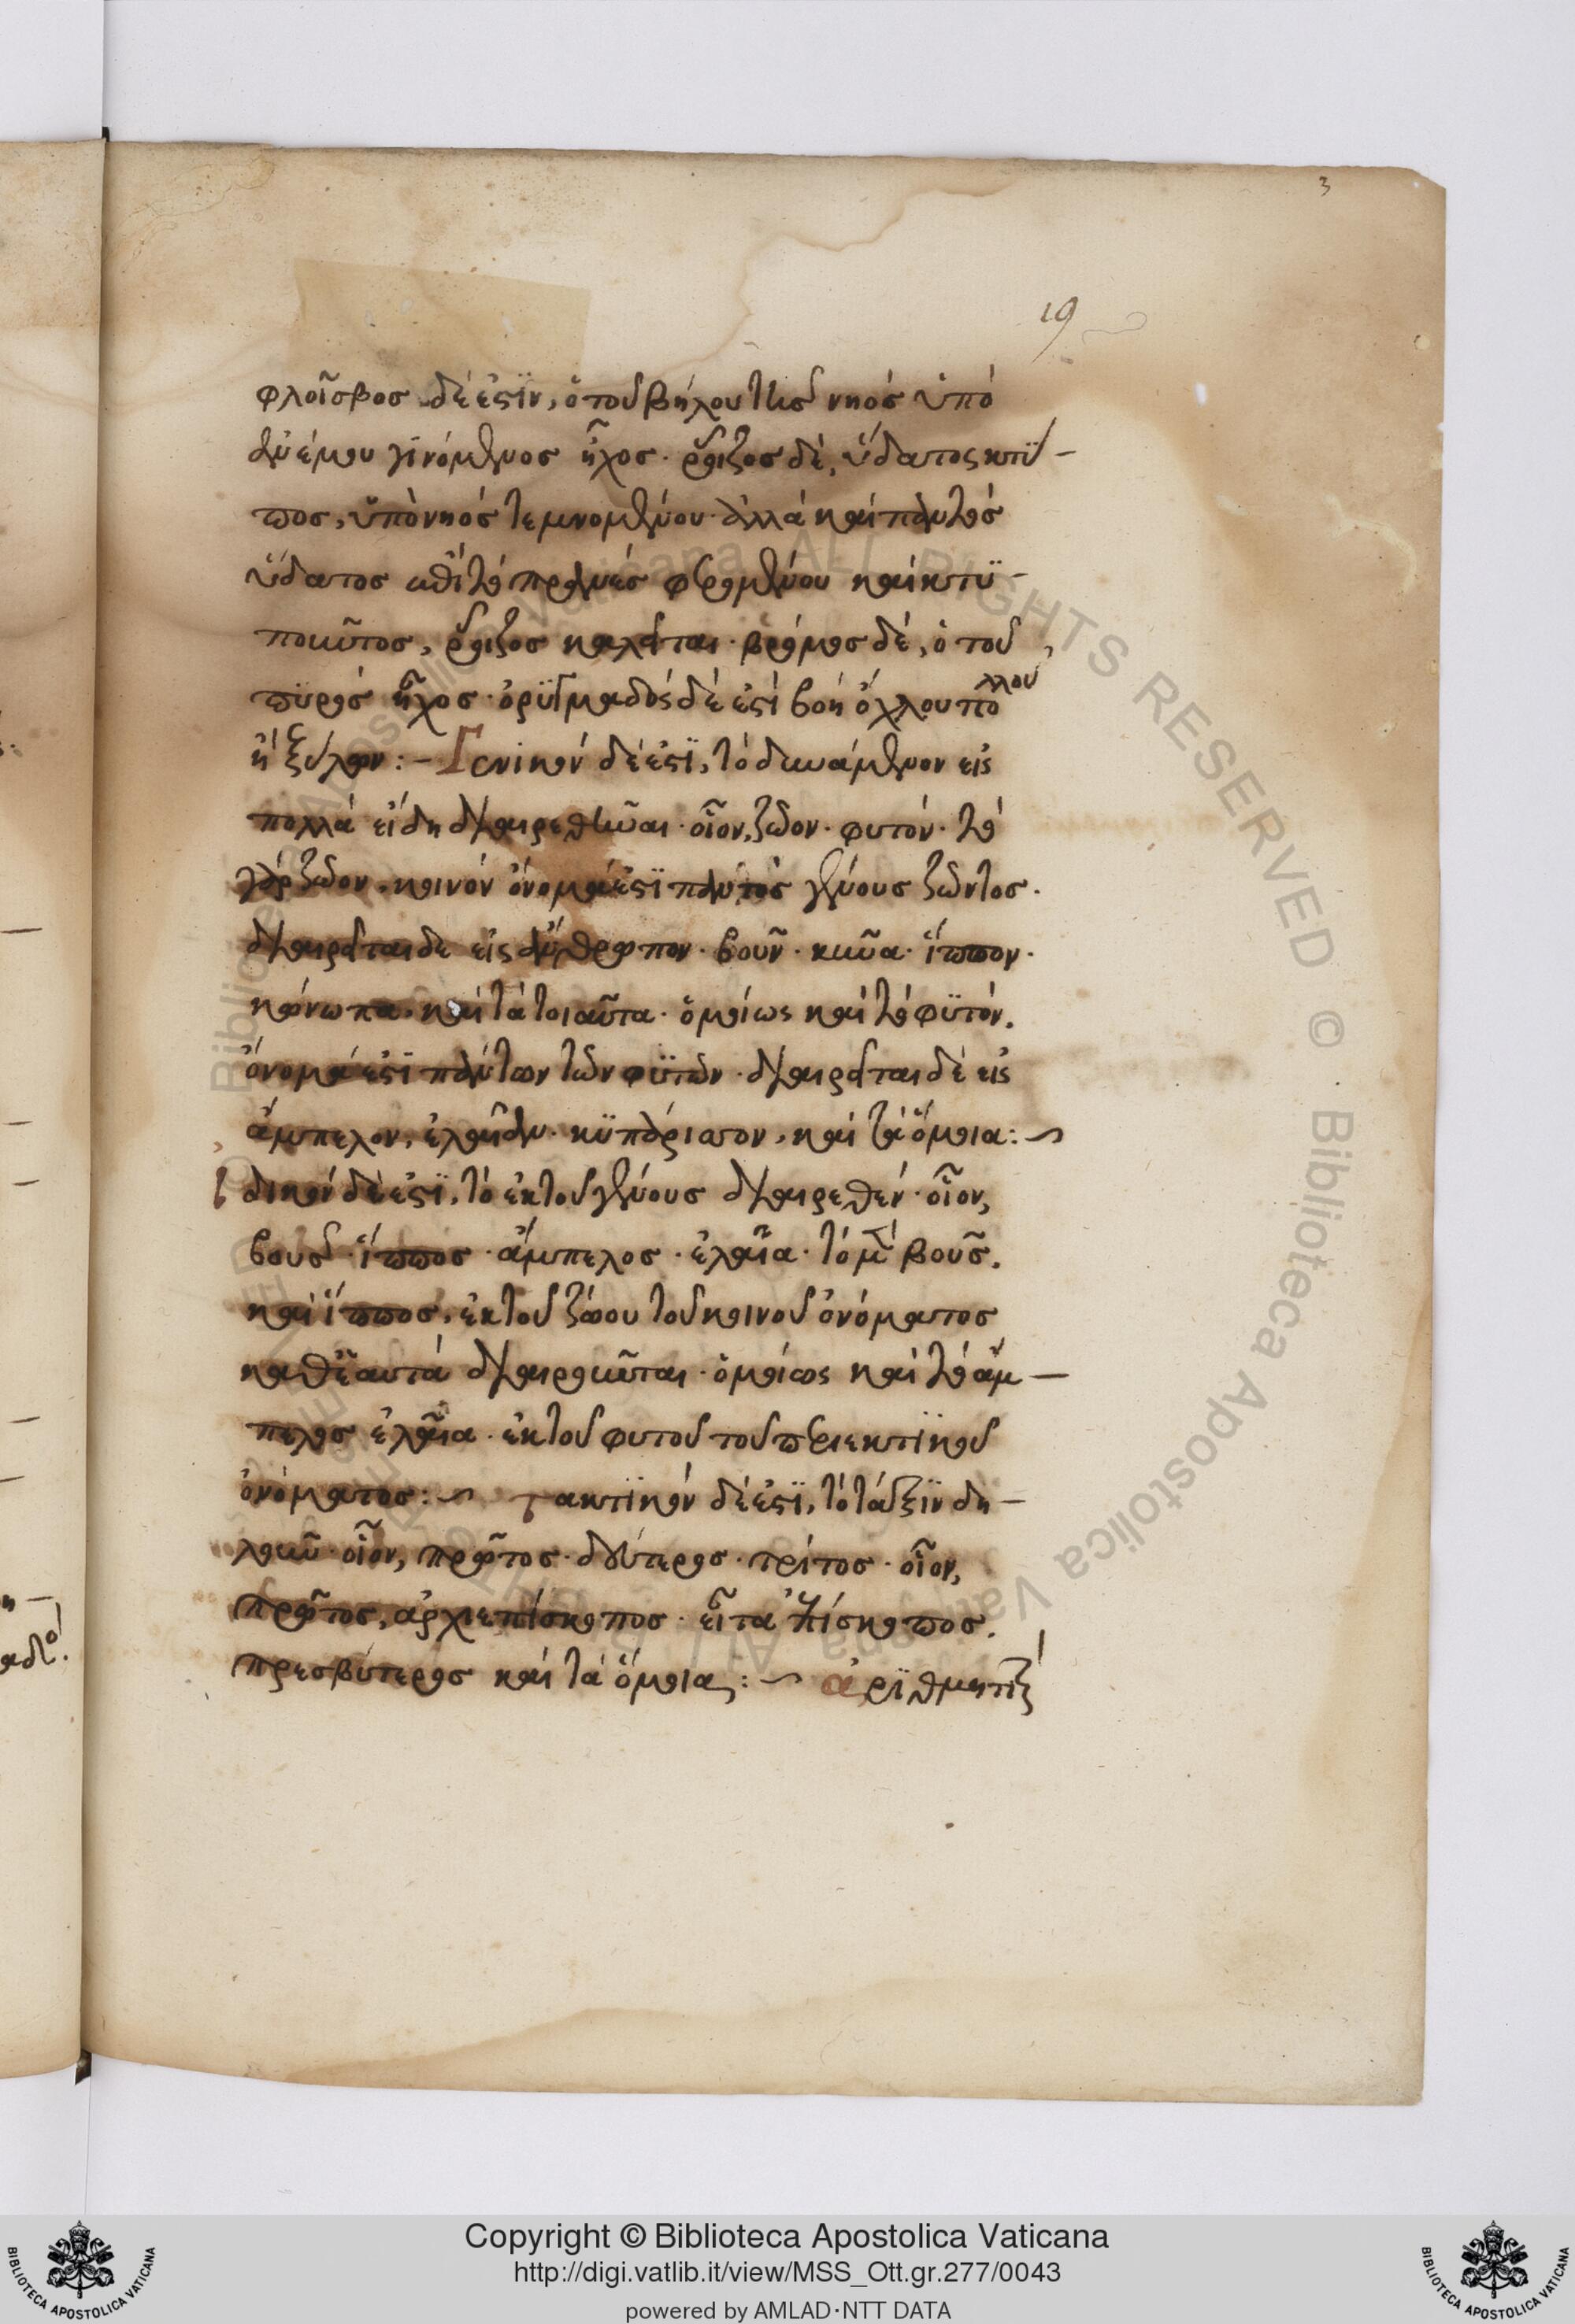 3
19
φλοῖσβος δέ ἐστιν, ὁ τοῦ βήλου τῆς νηός ὑπό
ἀνέμου γινόμενος ἦχος· ῥοῖζος δέ, ὕδατος κτύ-
πος, ὑπὸ νηός τεμνομένου· ἀλλά καί παντός
ὕδατος ἐπί τό πρανές φερομένου καί κτυ-
ποῦντος, ῥοῖζος καλεῖται· βρόμος δέ, ὁ τοῦ
πυρός ἦχος· ὀρυγμαδός δέ ἐστί βοή ὄχλου πολλοῦ
ἤ ξύλων:- Γενικόν δέ ἐστι, τό δυνάμενον εἰς
πολλά εἴδη διαιρεθῆναι· οἷον, ζῶον· φυτόν· τό
γάρ ζῶον, κοινόν ὄνομά ἐστι παντός γένους ζῶντος·
διαιρεῖται δε εἰς ἄνθρωπον· βοῦν· κύνα· ἵππον·
κώνωπα, καί τά τοιαῦτα· ὁμοίως καί τό φυτόν,
ὄνομά ἐστι πάντων τῶν φυτῶν· διαιρεῖται δέ εἰς
ἄμπελον, ἐλαίαν· κυπάρισσον, καί τά ὅμοια:~
ἰδικόν δέ ἐστι, τό ἐκ τοῦ γένους διαιρεθέν· οἷον,
βοῦς· ἵππος· ἄμπελος· ἐλαία· τό μὲν βοῦς,
καί ἵππος, ἐκ τοῦ ζώου τοῦ κοινοῦ ὀνόματος
καθ᾽ ἑαυτά διαιροῦνται· ὁμοίως καί τό ἄμ-
πελος ἐλαία· ἐκ τοῦ φυτοῦ τοῦ περιεκτικοῦ
ὀνόματος:~ τακτικόν δέ ἐστι, τό τάξιν δη-
λοῦν· οἷον, πρῶτος· δεύτερος· τρίτος· οἷον,
πρῶτος, ἀρχιεπίσκοπος· εἶτα ἐπίσκοπος,
πρεσβύτερος καί τά ὅμοια:~
Copyright © Biblioteca Apostolica Vaticana
http://digi.vatlib.it/view/MSS_Ott.gr.277/0043
powered by AMLAD·NTT DATA
BIBLIOTECA APOSTOLICA VATICANA
BIBLIOTECA APOSTOLICA VATICANA